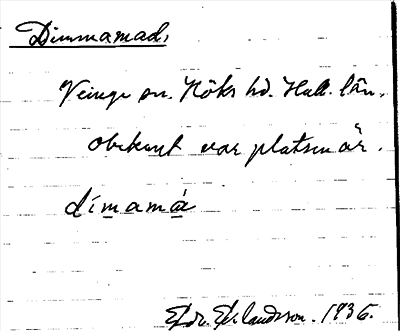 Dimmamad,
Veinge sn. Höks hd. Hall. län.
obekant var platsen är.
dímamá
Erlandsson. 1936.